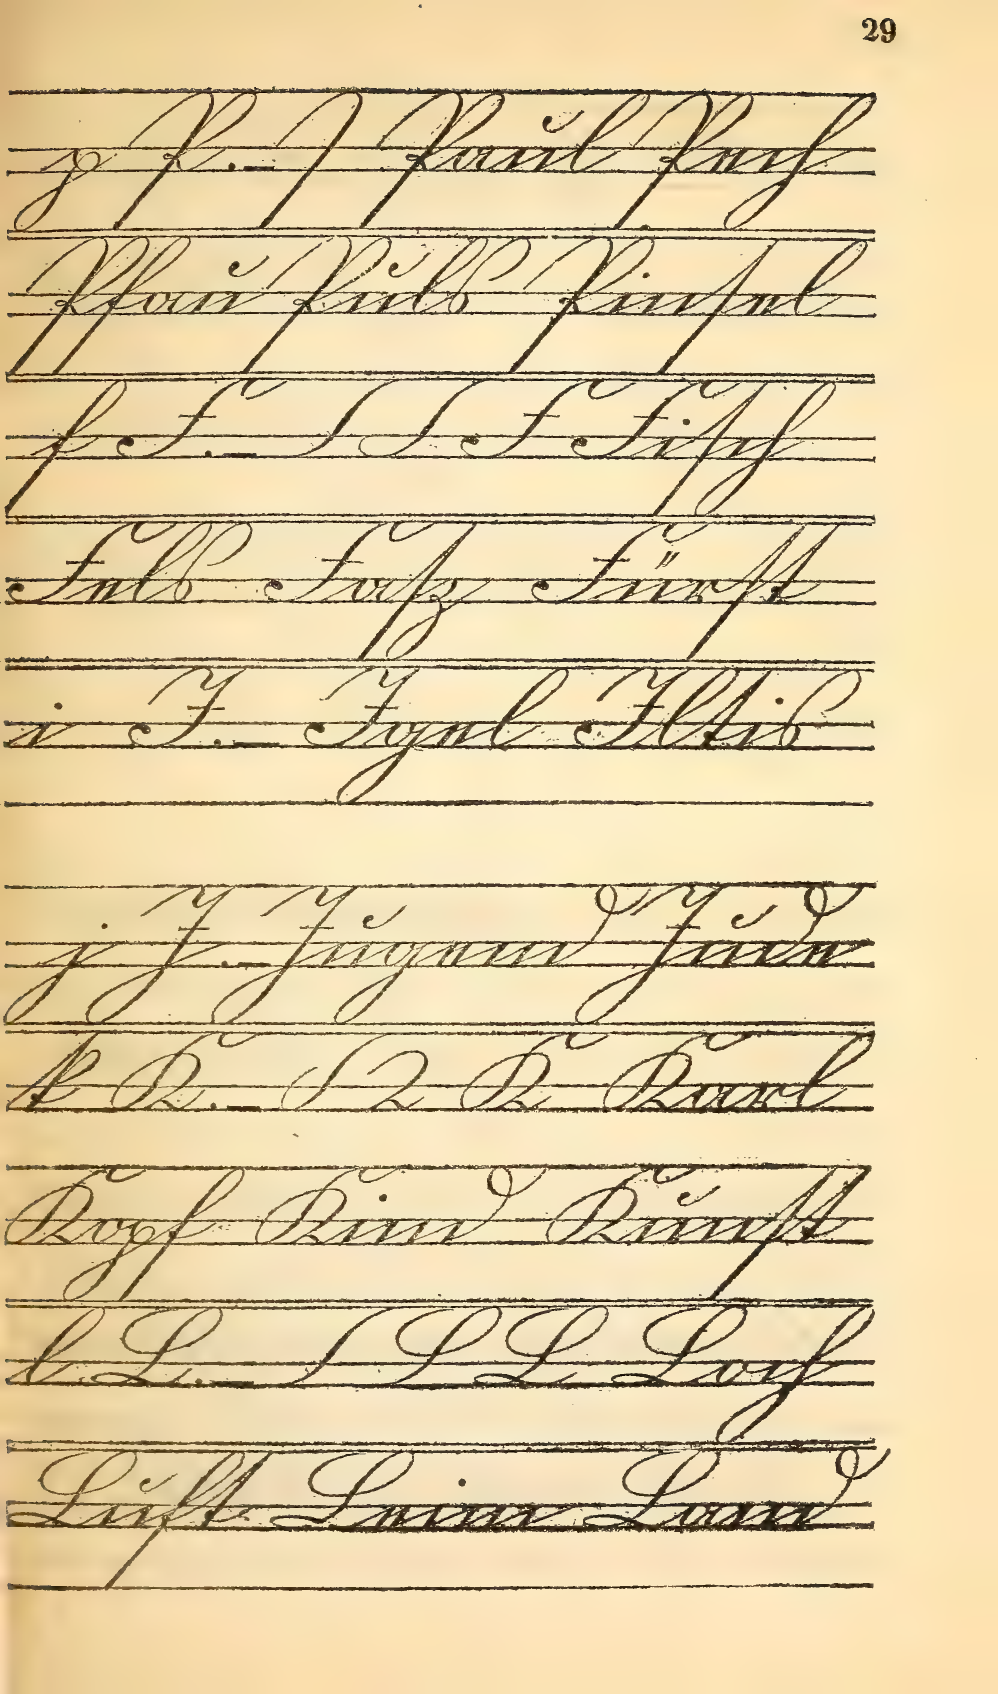 29
p P.– Paul Pech
Pfau Puls Pinsel
f F.– F Fisch
Fels Faß Fürst
i I.– Igel Iltis
j J.– Jugend Jude
k K.– K Karl
Kopf Kind Kunst
l L.– L L Loch
Luft Leine Land